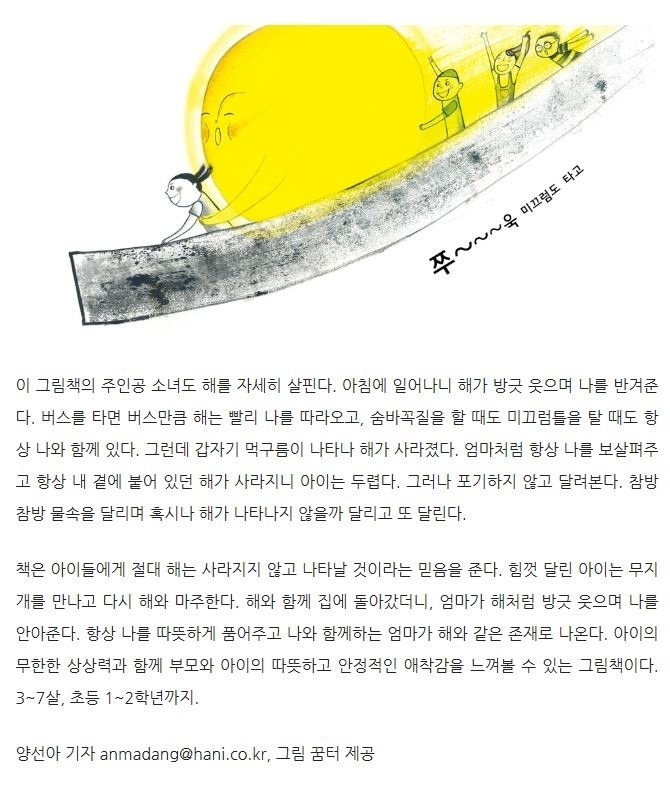 쭈~~~욱 미끄럼도 타고
이 그림책의 주인공 소녀도 해를 자세히 살핀다. 아침에 일어나니 해가 방긋 웃으며 나를 반겨준
다. 버스를 타면 버스만큼 해는 빨리 나를 따라오고, 숨바꼭질을 할 때도 미끄럼틀을 탈 때도 항
상 나와 함께 있다. 그런데 갑자기 먹구름이 나타나 해가 사라졌다. 엄마처럼 항상 나를 보살펴주
고 항상 내 곁에 붙어 있던 해가 사라지니 아이는 두렵다. 그러나 포기하지 않고 달려본다. 참방
참방 물속을 달리며 혹시나 해가 나타나지 않을까 달리고 또 달린다.
책은 아이들에게 절대 해는 사라지지 않고 나타날 것이라는 믿음을 준다. 힘껏 달린 아이는 무지
개를 만나고 다시 해와 마주한다. 해와 함께 집에 돌아갔더니, 엄마가 해처럼 방긋 웃으며 나를
안아준다. 항상 나를 따뜻하게 품어주고 나와 함께하는 엄마가 해와 같은 존재로 나온다. 아이의
무한한 상상력과 함께 부모와 아이의 따뜻하고 안정적인 애착감을 느껴볼 수 있는 그림책이다.
3~7살, 초등 1~2학년까지.
양선아 기자 anmadang@hani.co.kr, 그림 꿈터 제공